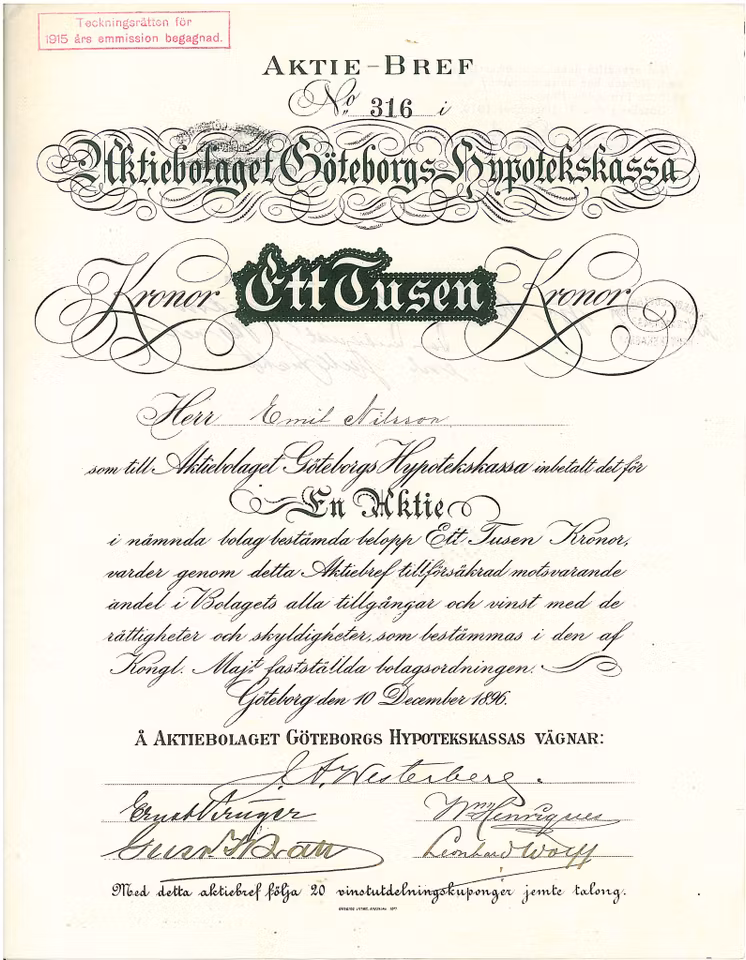 Teckningsrätten för
1915 års emmission begagnad.
AKTIE-BREF
No 316 i
Aktiebolaget Göteborgs Hypotekskassa
Kronor Ett Tusen Kronor
Herr Emil Nilsson
som till Aktiebolaget Göteborgs Hypotekskassa inbetalt det för
En Aktie
i nämnda bolag bestämda belopp Ett Tusen Kronor,
varder genom detta Aktiebref tillförsäkrad motsvarande
andel i Bolagets alla tillgångar och vinst med de
rättigheter och skyldigheter, som bestämmas i den af
Kongl. Maj:t fastställda bolagsordningen.
Göteborg den 10 December 1896.
Å AKTIEBOLAGET GÖTEBORGS HYPOTEKSKASSAS VÄGNAR:
J. A. Westerberg.
Ernst Krüger Wm Henriques
Gust. F. Bratt Leonhard Wolff
Med detta aktiebref följa 20 vinstutdelningskuponger jemte talong.